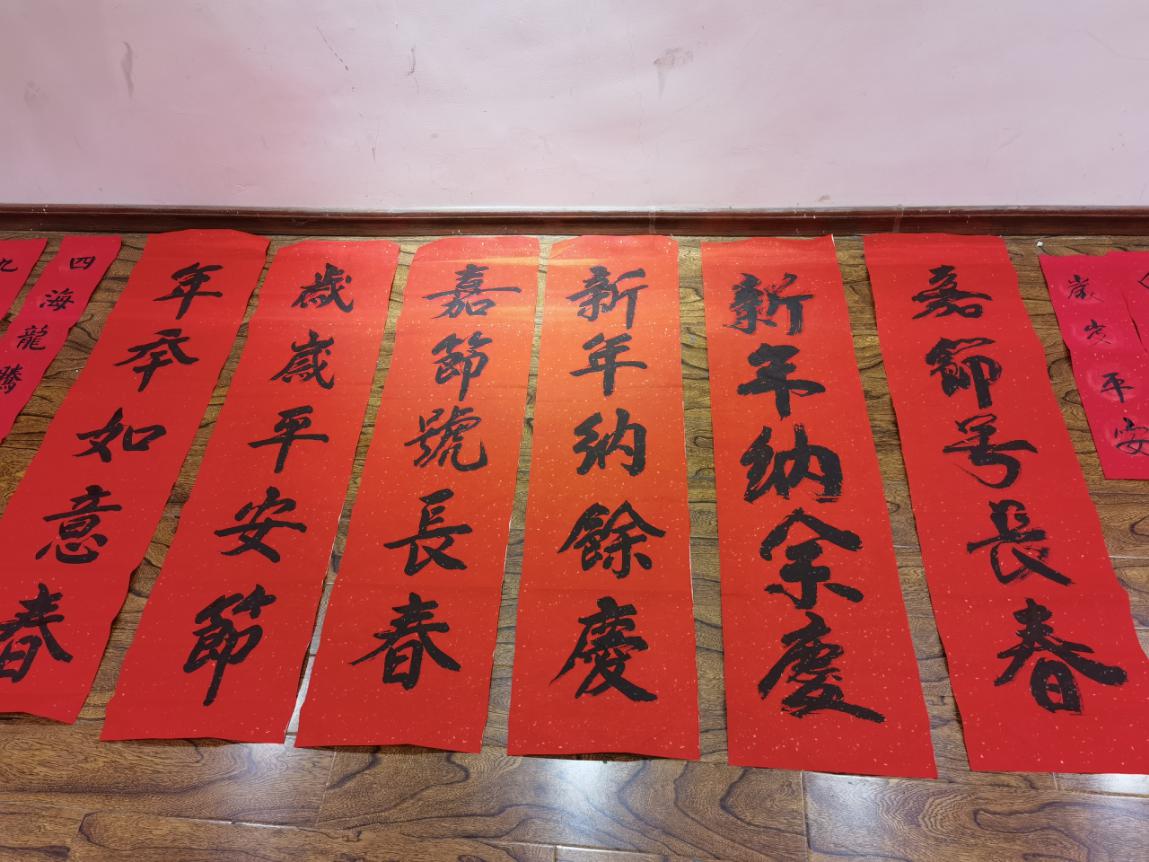 歲岁平安
嘉節号長春
新年納余慶
新年納餘慶
嘉節號長春
歲歲平安節
年秊如意春
四海龍騰
九